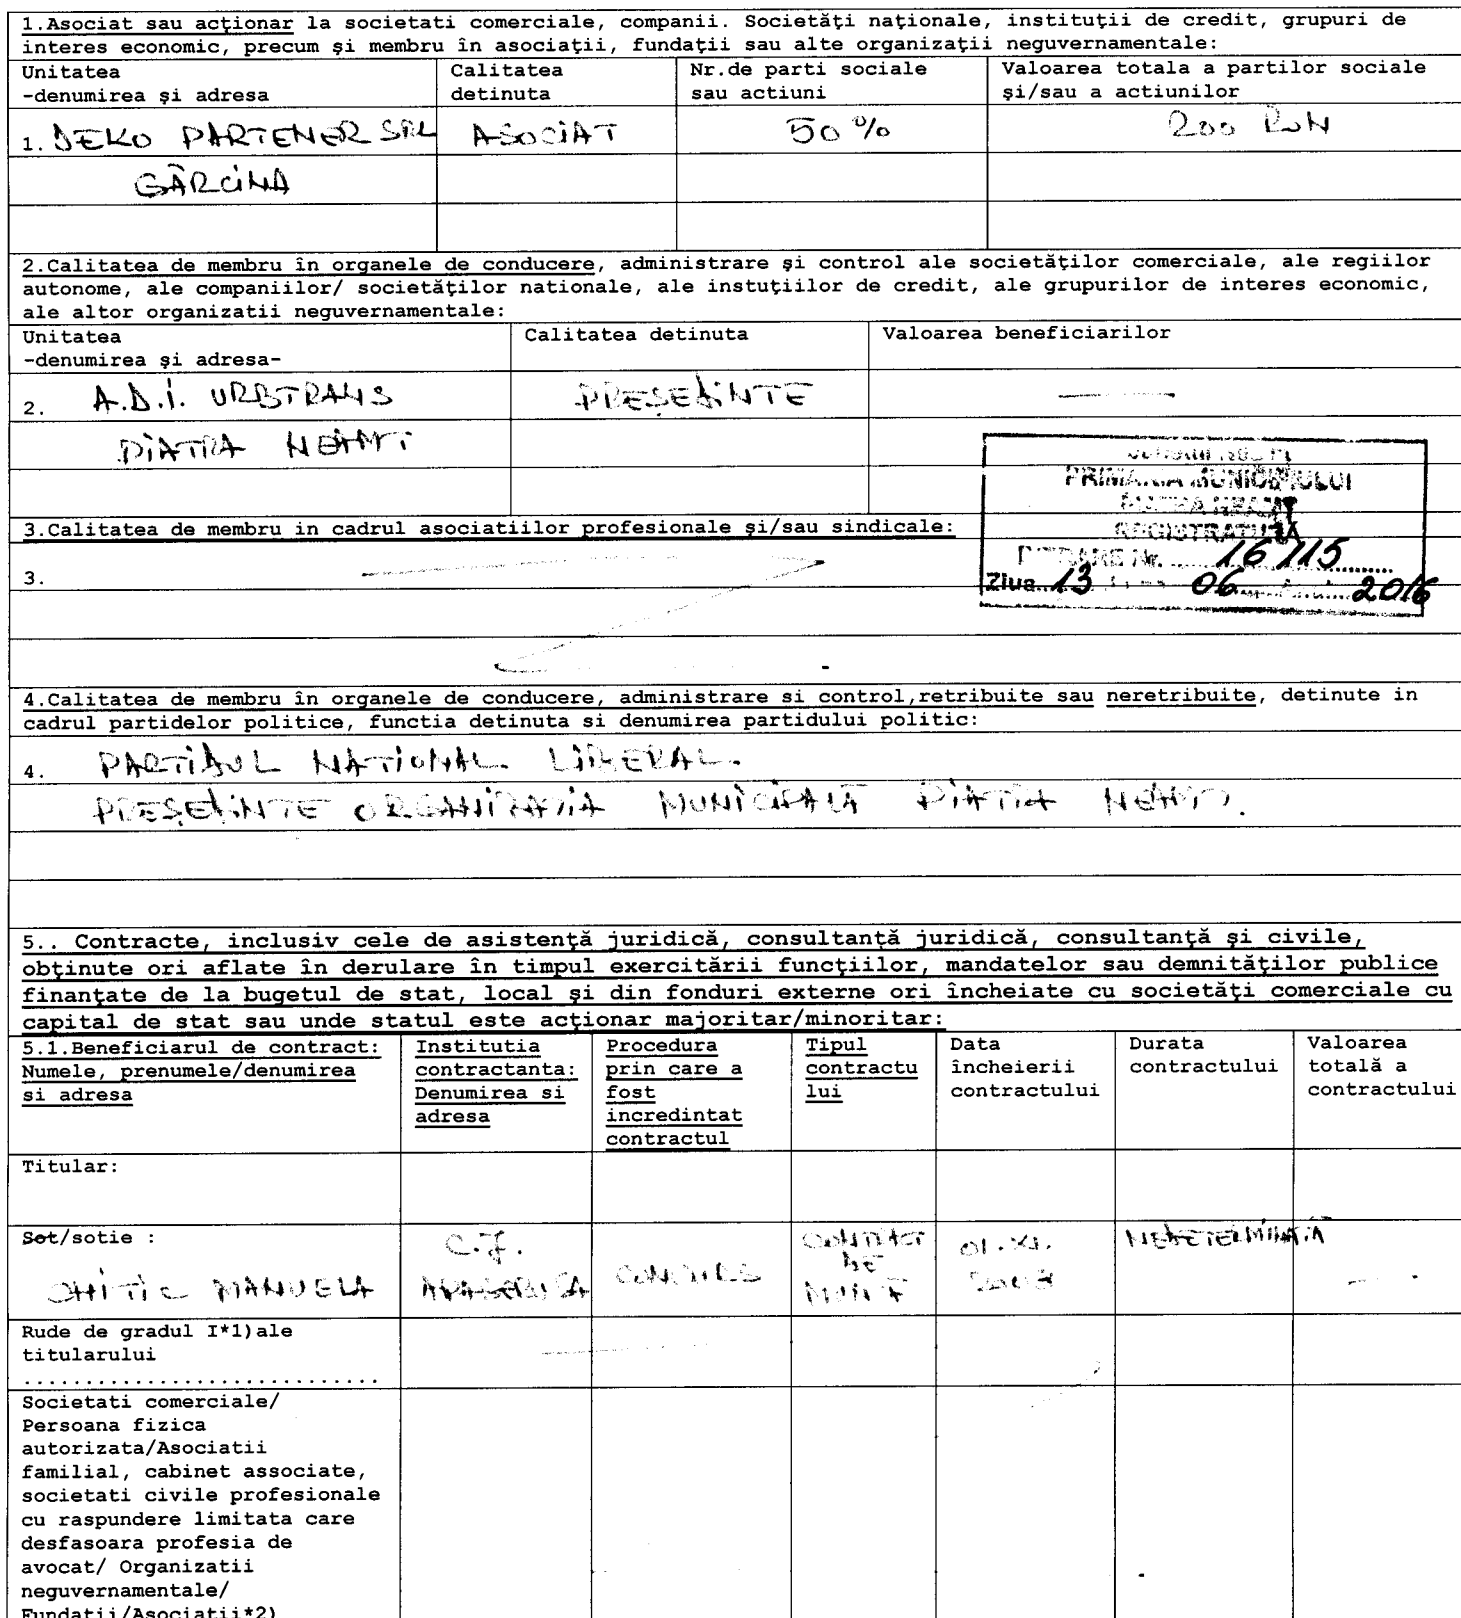 1.Asociat sau acţionar la societati comerciale, companii. Societăţi naţionale, instituţii de credit, grupuri de
interes economic, precum şi membru în asociaţii, fundaţii sau alte organizaţii neguvernamentale:
Unitatea
-denumirea şi adresa
Calitatea
detinuta
Nr.de parti sociale
sau actiuni
Valoarea totala a partilor sociale
şi/sau a actiunilor
1. DEKO PARTENER SRL ASOCIAT 50 % 200 RON
GÂRCINA
2.Calitatea de membru în organele de conducere, administrare şi control ale societăţilor comerciale, ale regiilor
autonome, ale companiilor/ societăţilor nationale, ale instuţiilor de credit, ale grupurilor de interes economic,
ale altor organizatii neguvernamentale:
Unitatea
-denumirea şi adresa-
Calitatea detinuta
Valoarea beneficiarilor
2. A.D.I. URBTRANS PREŞEDINTE —
PIATRA NEAMT
PRIMARIA MUNICIPIULUI
PIATRA NEAMT
REGISTRATURĂ
INTRARE Nr. 16 115
Ziua 13 06 2016
3.Calitatea de membru in cadrul asociatiilor profesionale şi/sau sindicale:
3.
4.Calitatea de membru în organele de conducere, administrare si control,retribuite sau neretribuite, detinute in
cadrul partidelor politice, functia detinuta si denumirea partidului politic:
4. PARTIDUL NATIONAL LIBERAL.
PREŞEDINTE ORGANIZATIA MUNICIPALĂ PIATRA NEAMT.
5.. Contracte, inclusiv cele de asistenţă juridică, consultanţă juridică, consultanţă şi civile,
obţinute ori aflate în derulare în timpul exercitării funcţiilor, mandatelor sau demnităţilor publice
finanţate de la bugetul de stat, local şi din fonduri externe ori încheiate cu societăţi comerciale cu
capital de stat sau unde statul este acţionar majoritar/minoritar:
5.1.Beneficiarul de contract:
Numele, prenumele/denumirea
si adresa
Institutia
contractanta:
Denumirea si
adresa
Procedura
prin care a
fost
incredintat
contractul
Tipul
contractu
lui
Data
încheierii
contractului
Durata
contractului
Valoarea
totală a
contractului
Titular:
Sot/sotie :
CHITIC MANUELA
C.J.
APASERV SA
CONCURS
CONTRACT
DE
MUNCĂ
01.XI.
NEDETERMINATĂ
—
Rude de gradul I*1)ale
titularului
.............................
Societati comerciale/
Persoana fizica
autorizata/Asociatii
familial, cabinet associate,
societati civile profesionale
cu raspundere limitata care
desfasoara profesia de
avocat/ Organizatii
neguvernamentale/
Fundatii/Asociatii*2)